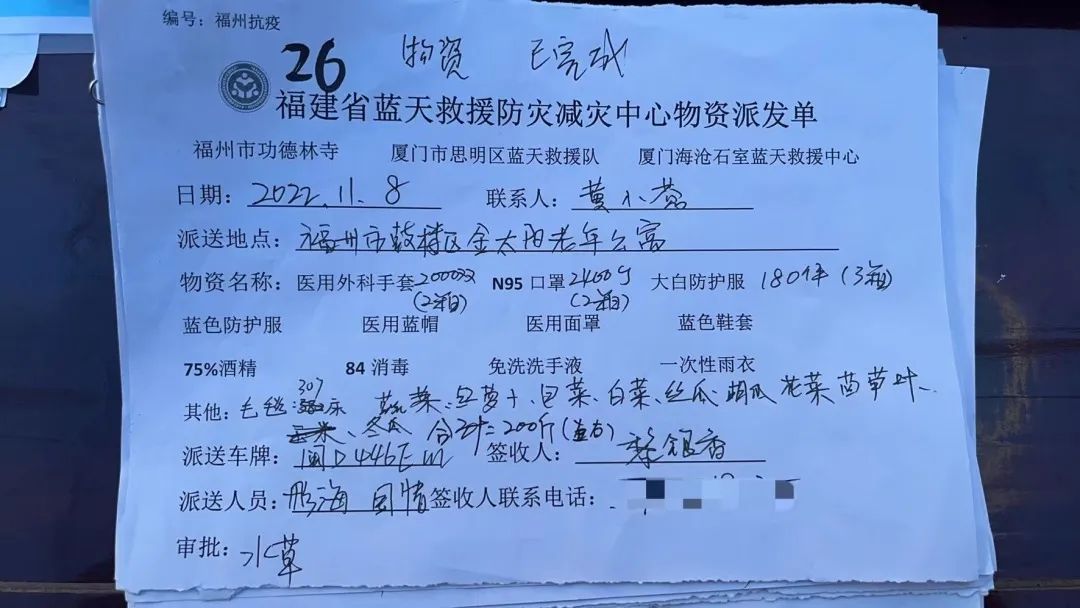 编号：福州抗疫
26 物资 已完成
福建省蓝天救援防灾减灾中心物资派发单
福州市功德林寺 厦门市思明区蓝天救援队 厦门海沧石室蓝天救援中心
日期：2022.11.8 联系人：黄小
派送地点：福州市鼓楼区金太阳老年公寓
物资名称：医用外科手套2000双 N95口罩2400个 大白防护服 180件（3箱）
（2箱） （2箱）
蓝色防护服 医用蓝帽 医用面罩 蓝色鞋套
75%酒精 84消毒 免洗洗手液 一次性雨衣
307
其他：毛毯：床 蔬菜：豆萝卜、包菜、白菜、丝瓜 胡瓜 花菜 莴苣叶、
、冬瓜 合计=200斤
派送车牌：闽D446EM 签收人：银香
派送人员：海 国情 签收人联系电话：
审批：水草